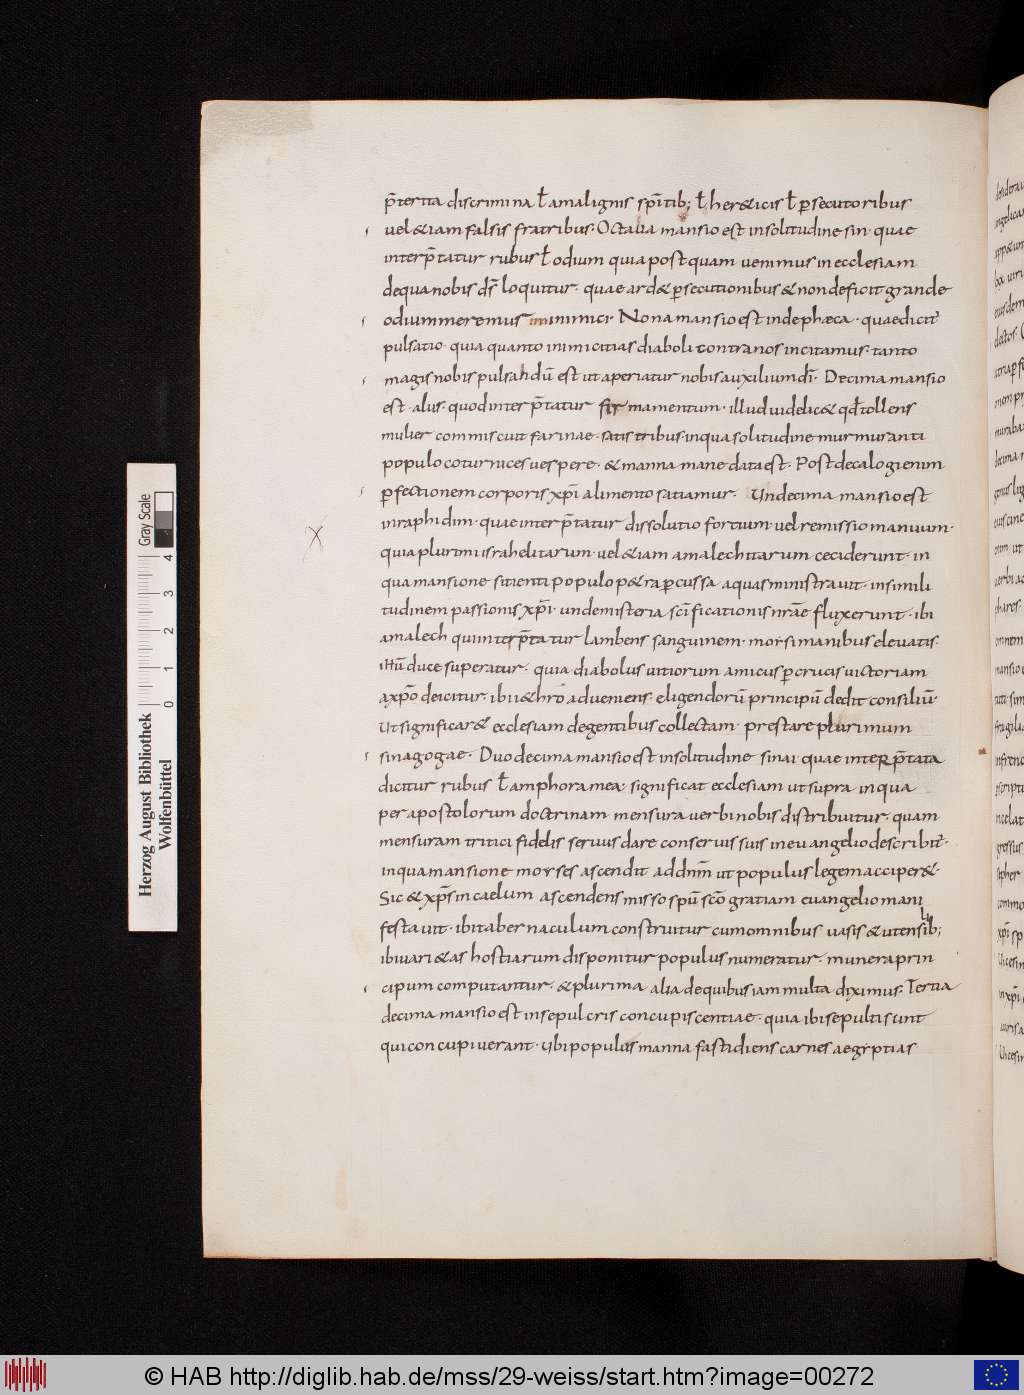 p̄terita discrimina ł amalignis sp̄itib; ł her&icis ł ꝑsecutoribus
uel &iam falsis fratribus· Octaua mansio est insolitudine sin· quae
interp̄tatur rubus ł odium quia postquam uenimus in ecclesiam
dequa nobis dn̄s loquitur· quae ard& ꝑsecutionibus & non deficit grande
odium meremus inimici· Nona mansio est indephæca· quae dicit̄
pulsatio· quia quanto inimicitias diaboli contra nos incitamus· tanto
magis nobis pulsandū est ut aperiatur nobis auxilium dī· Decima mansio
est· alus· quod interp̄tatur firmamentum· illud uidelic& qđ tollens
mulier commiscuit farinae· satis tribus· in qua solitudine murmuranti
populo coturnices uespere· & manna mane data est· Post decalogi enim
ꝑfectionem corporis xp̄i alimento satiamur· Undecima mansio est
inraphidim· quae interp̄tatur dissolutio fortium· uel remissio manuum·
quia plurimi israhelitarum· uel &iam amalechitarum ceciderunt· in
qua mansione· sitienti populo p&ra ꝑcussa aquas ministrauit· insimili
tudinem passionis xp̄i· unde misteria sc̄ificationis nr̄ae fluxerunt· ibi
amalech qui interp̄tatur lambens sanguinem· morsi manibus eleuatis·
ihū duce superatur· quia diabolus uitiorum amicus ꝑ crucis uictoriam
axp̄o deicitur· ibi i&hro adueniens· eligendorū principū dedit consiliū·
Ut significar& ecclesiam degentibus collectam· prestare plurimum
sinagogae· Duodecima mansio est insolitudine sinai quae interp̄tata
dicitur rubus ł amphora mea· significat ecclesiam ut supra in qua
per apostolorum doctrinam mensura uerbi nobis distribuitur· quam
mensuram tritici fidelis seruus dare conseruis suis in euangelio describit̄·
in qua mansione morses ascendit ad dnm̄ ut populus legem acciper&·
Sic & xp̄s in caelum ascendens misso spū sc̄o gratiam euangelio mani
festauit· ibi tabernaculum construitur cum omnibus uasis & utensib;
ibi uari&as hostiarum disponitur populus numeratur· munera prin
cipum computantur· & plurima alia de quibus iam multa diximus· Tertia
decima mansio est in sepulcris concupiscentiae· quia ibi sepulti sunt
qui concupiuerant· Ubi populus manna fastidiens carnes aegiptias
Herzog August Bibliothek
Wolfenbüttel
0 1 2 3 4
Gray Scale
© HAB http://diglib.hab.de/mss/29-weiss/start.htm?image=00272